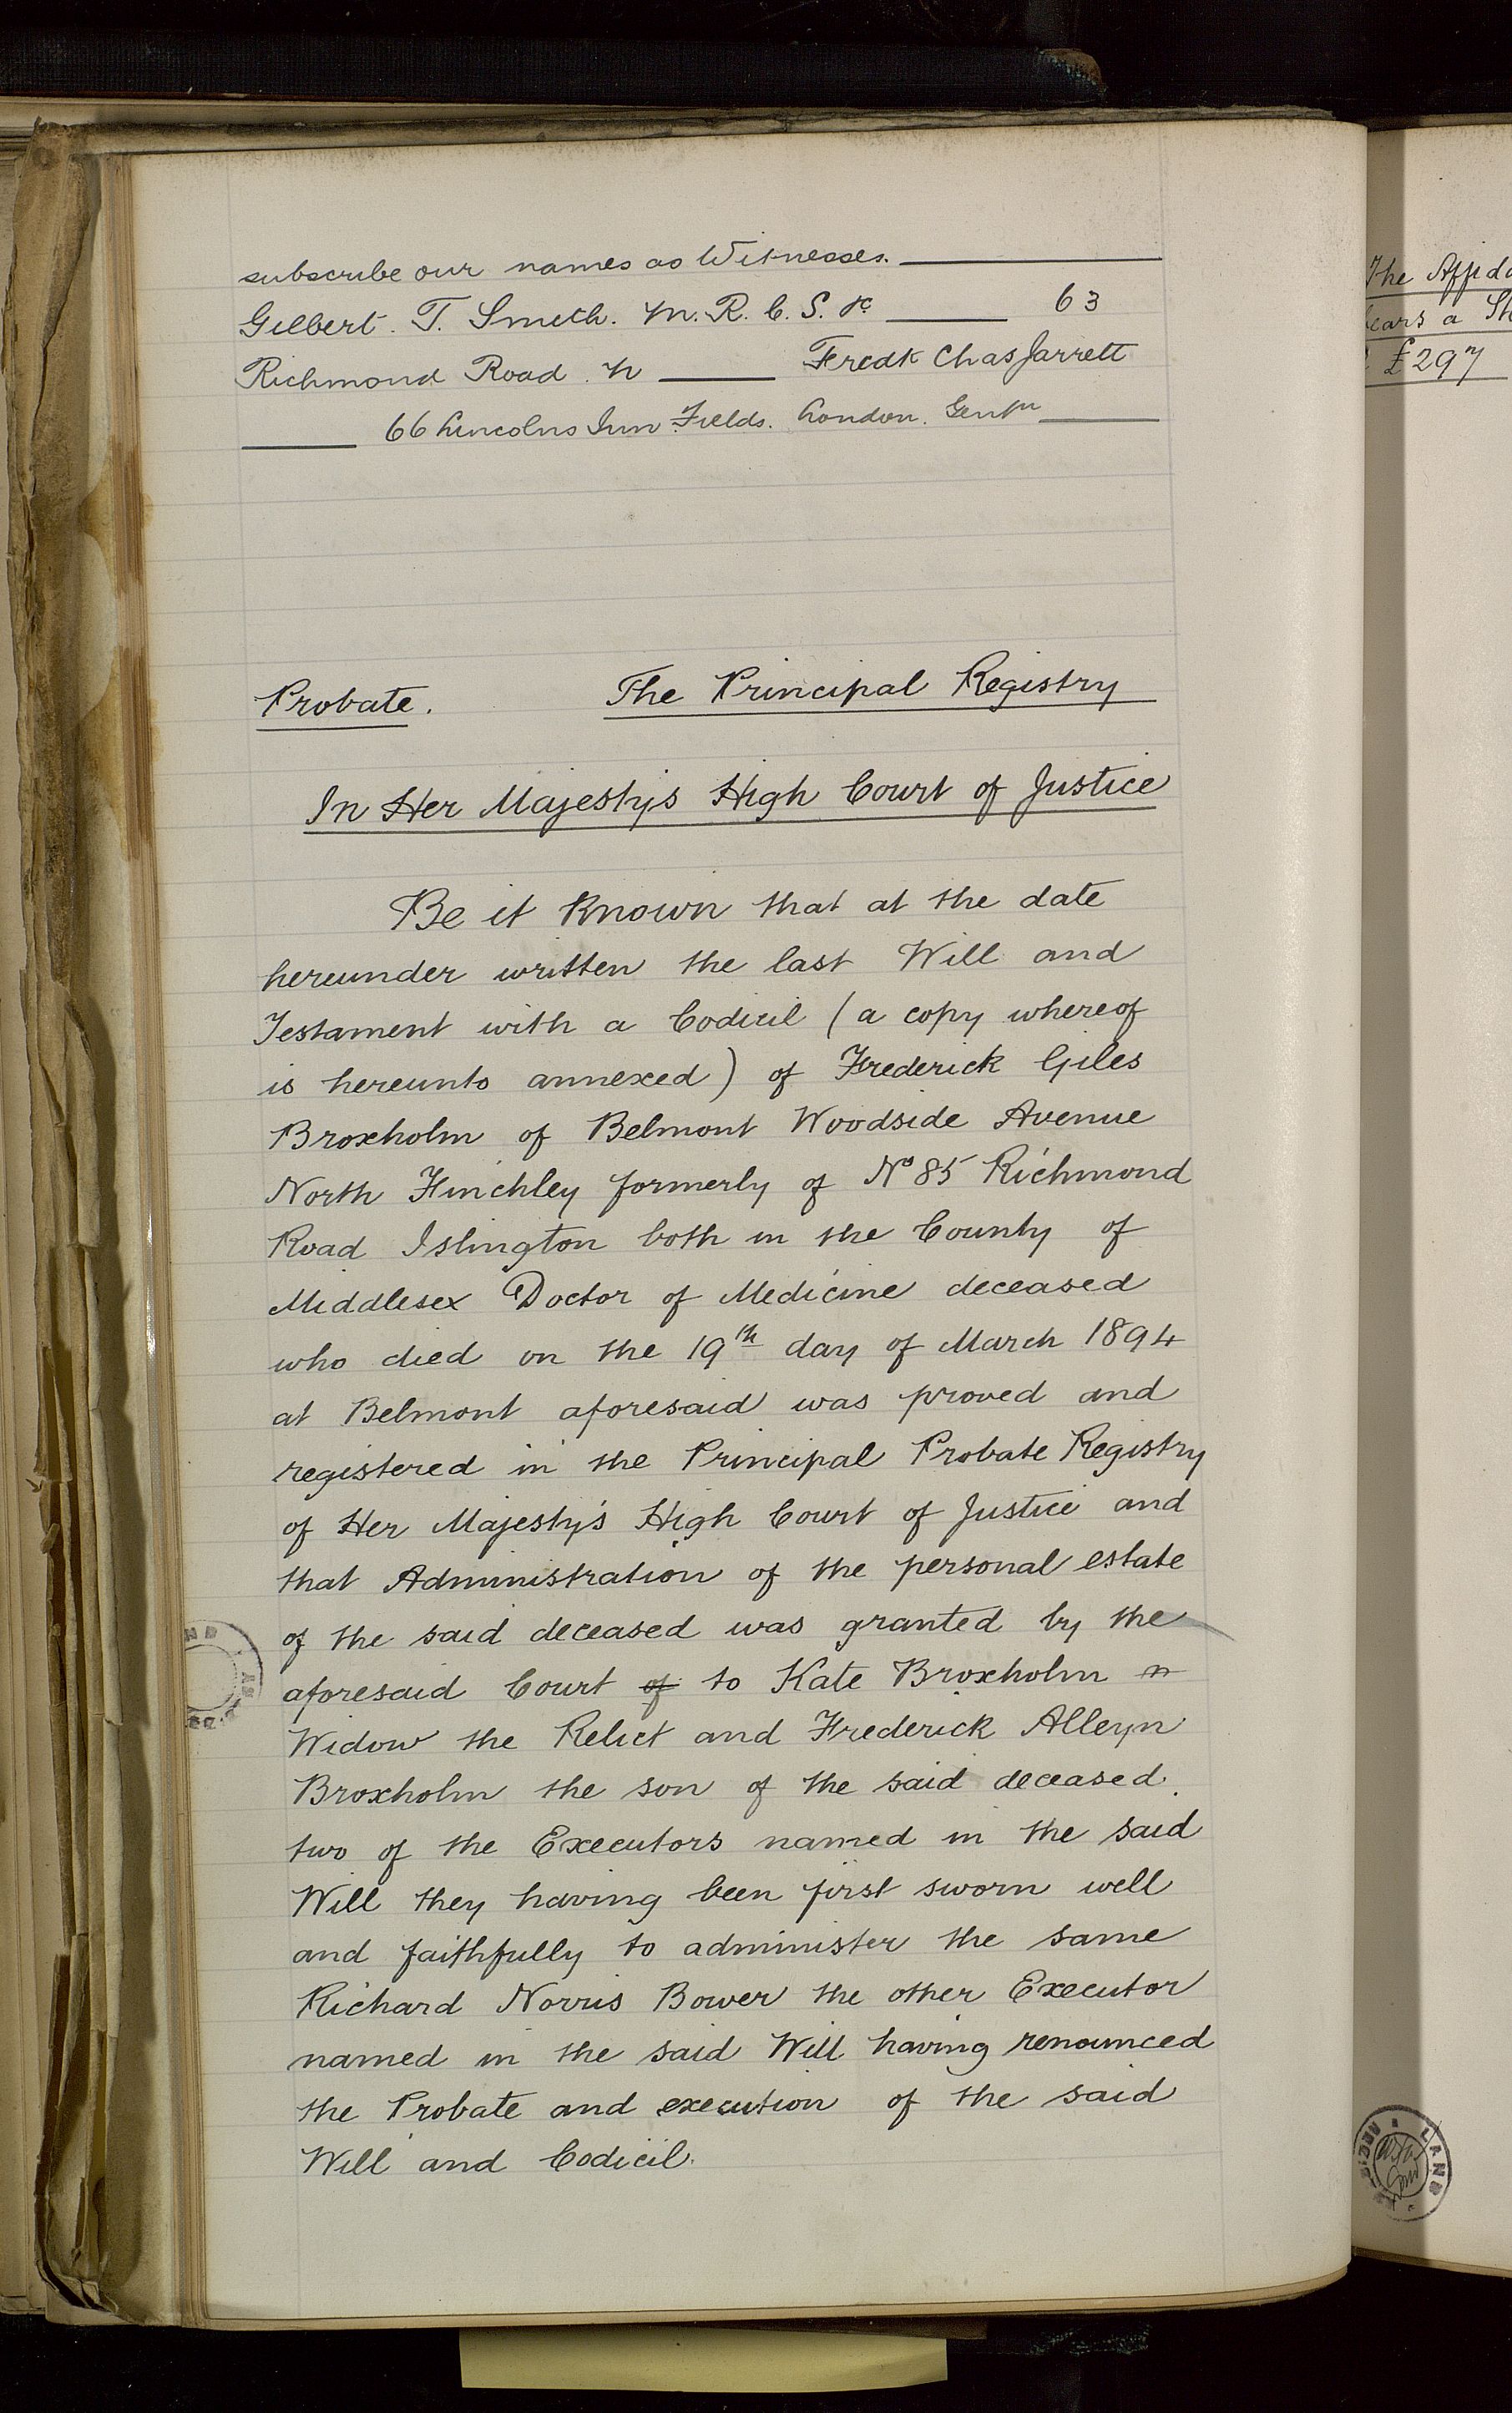 subscribe our names as Witnesses.
Gilbert. T. Smith. M.R.C.S. &c 63
Richmond Road. N Fredk Chas Jarrett
66 Lincolns Inn Fields. London. Gentn
Probate. The Principal Registry
In Her Majesty's High Court of Justice
Be it known that at the date
hereunder written the last Will and
Testament with a Codicil (a copy whereof
is hereunto annexed) of Frederick Giles
Broxholm of Belmont Woodside Avenue
North Finchley formerly of No 85 Richmond
Road Islington both in the County of
Middlesex Doctor of Medicine deceased
who died on the 19th day of March 1894
at Belmont aforesaid was proved and
registered in the Principal Probate Registry
of Her Majesty's High Court of Justice and
that Administration of the personal estate
of the said deceased was granted by the
aforesaid Court of to Kate Broxholm
Widow the Relict and Frederick Alleyn
Broxholm the son of the said deceased.
two of the Executors named in the said
Will they having been first sworn well
and faithfully to administer the same
Richard Norris Bower the other Executor
named in the said Will having renounced
the Probate and execution of the said
Will and Codicil.
The
£297
LAND